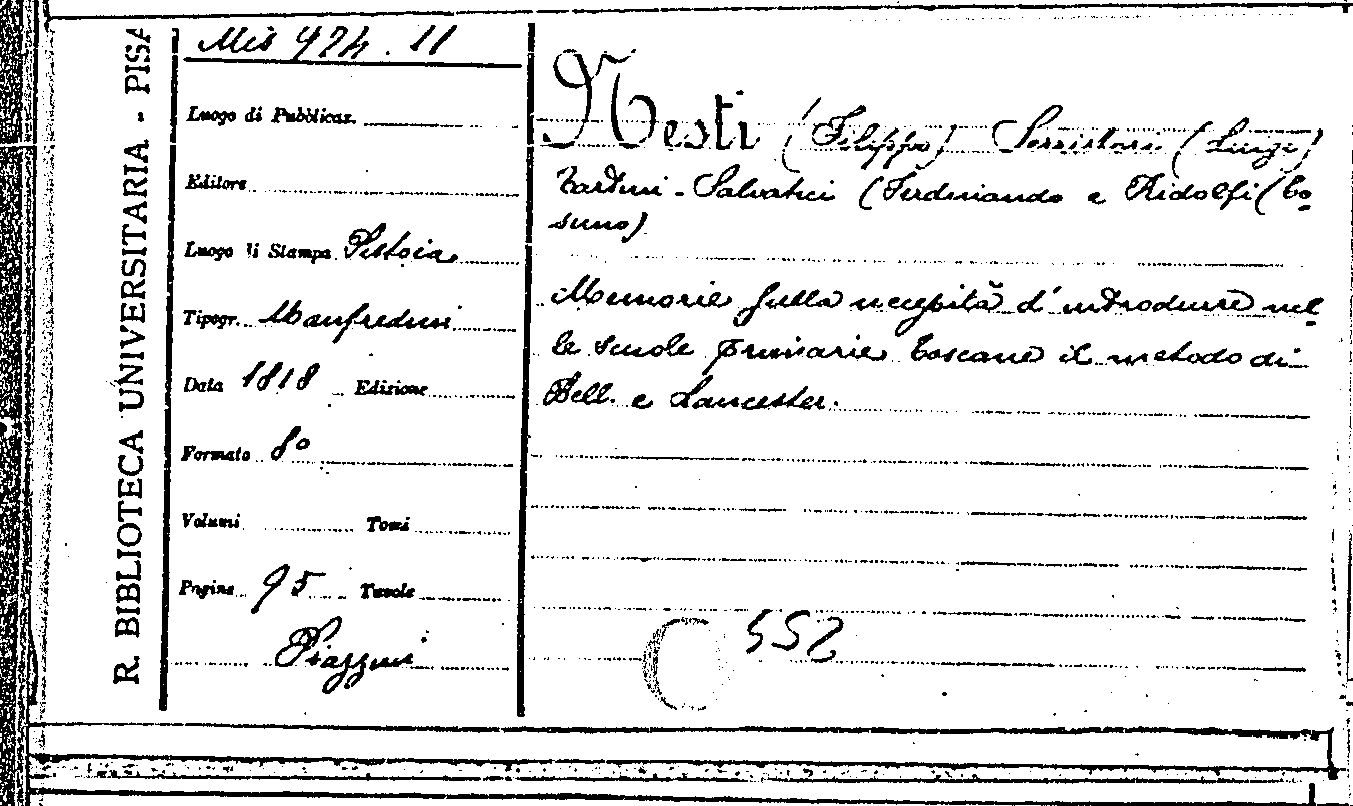 R. BIBLIOTECA UNIVERSITARIA - PISA
Mis 424. 11
Luogo di Pubblicaz.
Editore
Luogo di Stampa Pistoia
Tipogr. Manfredini
Data 1818 Edizione
Formato 8º
Volumi Tomi
Pagine 95 Tavole
Piazzini
Nesti (Filippo) Serristori (Luigi)
Tartini-Salvatici (Ferdinando e Ridolfi (Co-
simo)
Memorie sulla necessità d'introdurre nel-
le scuole primarie toscane il metodo di
Bell. e Lancester.
552